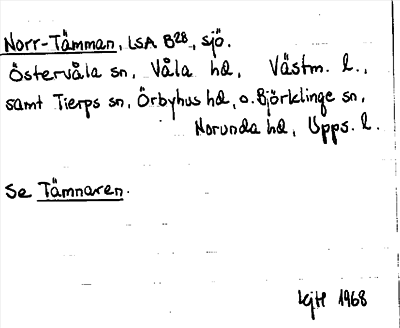 Norr-Tämman, LSA B28, sjö.
Östervåla sn, Våla hd, Västm. l.,
samt Tierps sn, Örbyhus hd, o. Björklinge sn,
Norunda hd, Upps. l.
Se Tämnaren.
KjH 1968